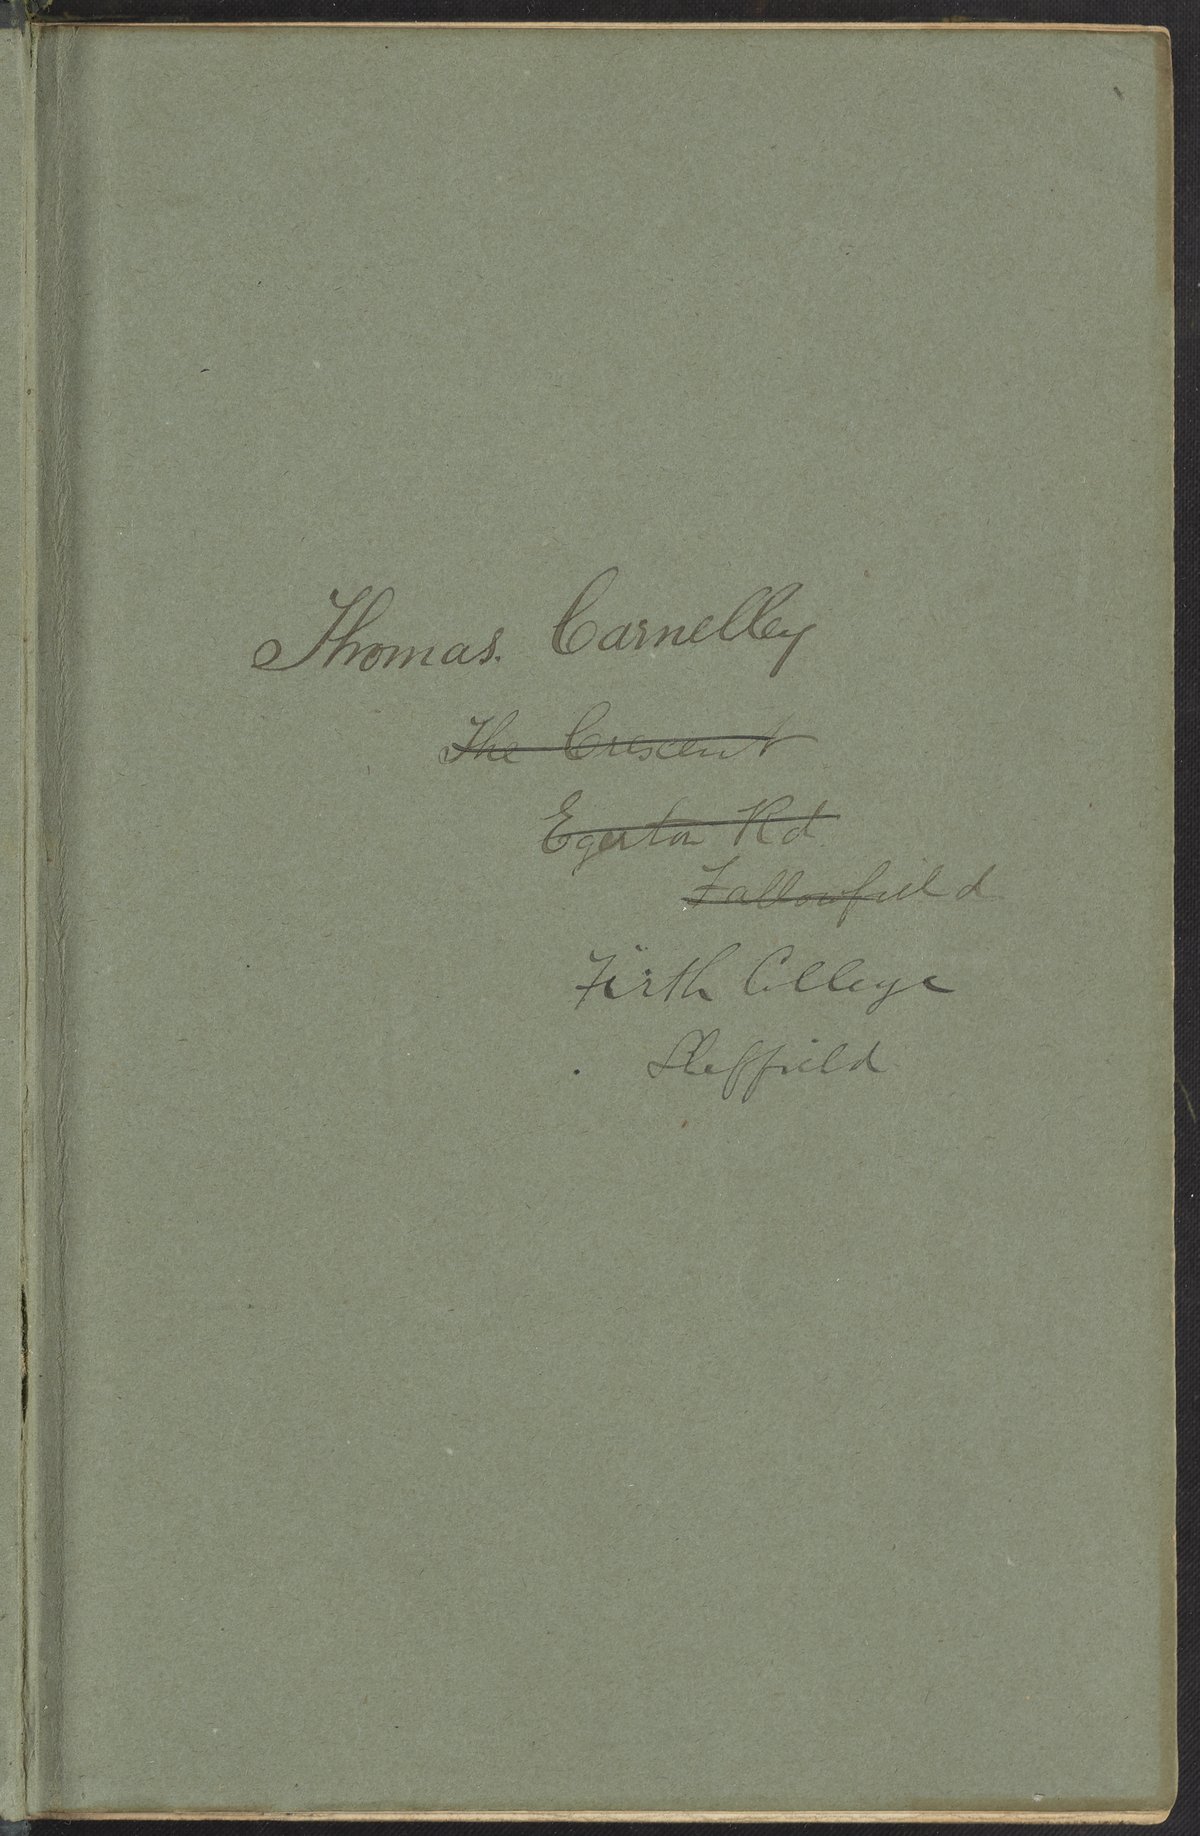 Thomas. Carnelley
The Crescent
Egerton Rd
Fallowfield
Firth College
Sheffield